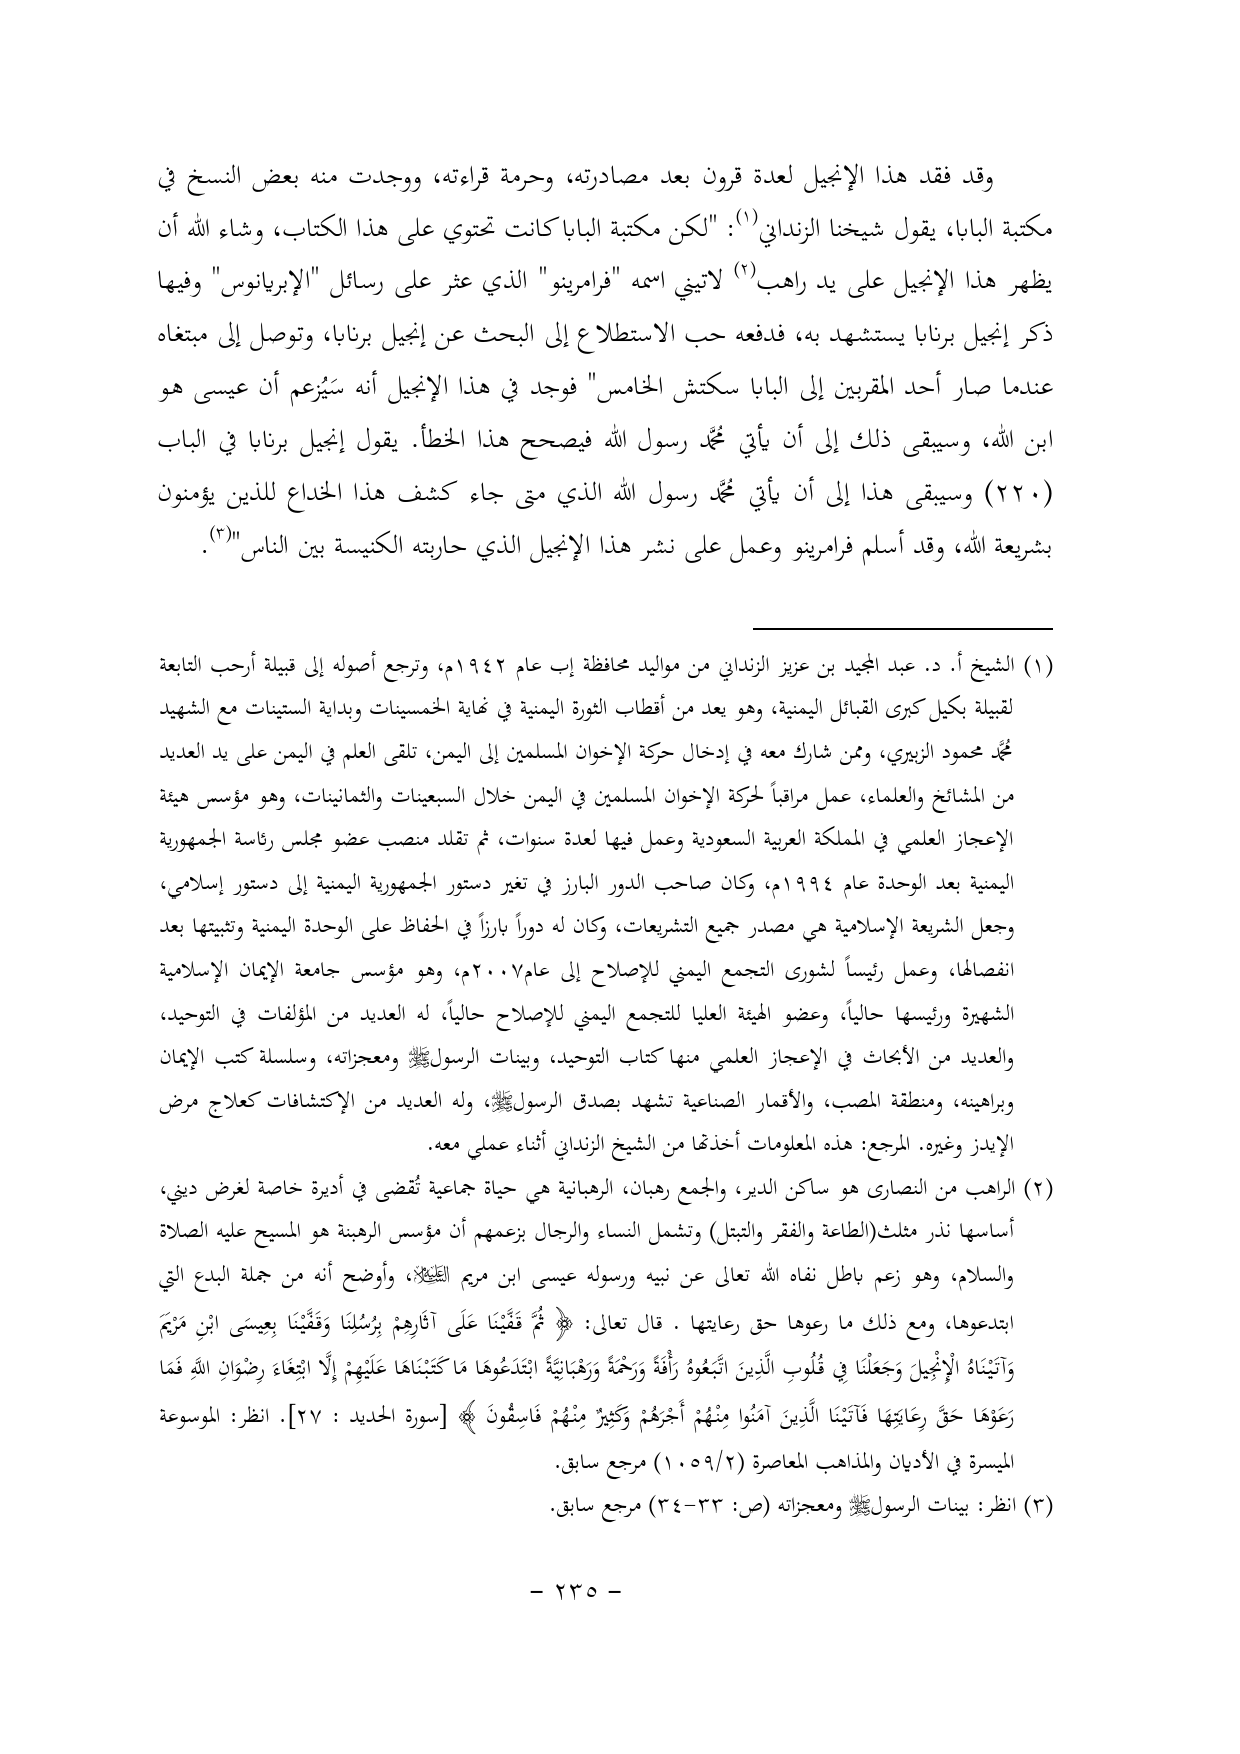 وقد فقد هذا الإنجيل لعدة قرون بعد مصادرته، وحرمة قراءته، ووجدت منه بعض النسخ في
مكتبة البابا، يقول شيخنا الزنداني(١): "لكن مكتبة البابا كانت تحتوي على هذا الكتاب، وشاء الله أن
يظهر هذا الإنجيل على يد راهب(٢) لاتيني اسمه "فرامرينو" الذي عثر على رسائل "الإيريانوس" وفيها
ذكر إنجيل برنابا يستشهد به، فدفعه حب الاستطلاع إلى البحث عن إنجيل برنابا، وتوصل إلى مبتغاه
عندما صار أحد المقربين إلى البابا سكتش الخامس" فوجد في هذا الإنجيل أنه سَيُزعم أن عيسى هو
ابن الله، وسيبقى ذلك إلى أن يأتي مُحَّد رسول الله فيصحح هذا الخطأ. يقول إنجيل برنابا في الباب
(٢٢٠) وسيبقى هذا إلى أن يأتي مُحَّد رسول الله الذي متى جاء كشف هذا الخداع للذين يؤمنون
بشريعة الله، وقد أسلم فرامرينو وعمل على نشر هذا الإنجيل الذي حاربته الكنيسة بين الناس"(٣).
(١) الشيخ أ. د. عبد المجيد بن عزيز الزنداني من مواليد محافظة إب عام ١٩٤٢م، وترجع أصوله إلى قبيلة أرحب التابعة
لقبيلة بكيل كبرى القبائل اليمنية، وهو يعد من أقطاب الثورة اليمنية في نهاية الخمسينات وبداية الستينات مع الشهيد
مُحَّد محمود الزبيري، وممن شارك معه في إدخال حركة الإخوان المسلمين إلى اليمن، تلقى العلم في اليمن على يد العديد
من المشائخ والعلماء، عمل مراقباً لحركة الإخوان المسلمين في اليمن خلال السبعينات والثمانينات، وهو مؤسس هيئة
الإعجاز العلمي في المملكة العربية السعودية وعمل فيها لعدة سنوات، ثم تقلد منصب عضو مجلس رئاسة الجمهورية
اليمنية بعد الوحدة عام ١٩٩٤م، وكان صاحب الدور البارز في تغير دستور الجمهورية اليمنية إلى دستور إسلامي،
وجعل الشريعة الإسلامية هي مصدر جميع التشريعات، وكان له دوراً بارزاً في الحفاظ على الوحدة اليمنية وتثبيتها بعد
انفصالها، وعمل رئيساً لشورى التجمع اليمني للإصلاح إلى عام٢٠٠٧م، وهو مؤسس جامعة الإيمان الإسلامية
الشهيرة ورئيسها حالياً، وعضو الهيئة العليا للتجمع اليمني للإصلاح حالياً، له العديد من المؤلفات في التوحيد،
والعديد من الأبحاث في الإعجاز العلمي منها كتاب التوحيد، وبينات الرسولﷺ ومعجزاته، وسلسلة كتب الإيمان
وبراهينه، ومنطقة المصب، والأقمار الصناعية تشهد بصدق الرسولﷺ، وله العديد من الإكتشافات كعلاج مرض
الإيدز وغيره. المرجع: هذه المعلومات أخذتها من الشيخ الزنداني أثناء عملي معه.
(٢) الراهب من النصارى هو ساكن الدير، والجمع رهبان، الرهبانية هي حياة جماعية تُقضى في أديرة خاصة لغرض ديني،
أساسها نذر مثلث(الطاعة والفقر والتبتل) وتشمل النساء والرجال بزعمهم أن مؤسس الرهبنة هو المسيح عليه الصلاة
والسلام، وهو زعم باطل نفاه الله تعالى عن نبيه ورسوله عيسى ابن مريم عليه السلام، وأوضح أنه من جملة البدع التي
ابتدعوها، ومع ذلك ما رعوها حق رعايتها . قال تعالى: ﴿ ثُمَّ قَفَّيْنَا عَلَى آثَارِهِمْ بِرُسُلِنَا وَقَفَّيْنَا بِعِيسَى ابْنِ مَرْيَمَ
وَآتَيْنَاهُ الْإِنْجِيلَ وَجَعَلْنَا فِي قُلُوبِ الَّذِينَ اتَّبَعُوهُ رَأْفَةً وَرَحْمَةً وَرَهْبَانِيَّةً ابْتَدَعُوهَا مَا كَتَبْنَاهَا عَلَيْهِمْ إِلَّا ابْتِغَاءَ رِضْوَانِ اللَّهِ فَمَا
رَعَوْهَا حَقَّ رِعَايَتِهَا فَآتَيْنَا الَّذِينَ آمَنُوا مِنْهُمْ أَجْرَهُمْ وَكَثِيرٌ مِنْهُمْ فَاسِقُونَ ﴾ [سورة الحديد : ٢٧]. انظر: الموسوعة
الميسرة في الأديان والمذاهب المعاصرة (١٠٥٩/٢) مرجع سابق.
(٣) انظر: بينات الرسولﷺ ومعجزاته (ص: ٣٣-٣٤) مرجع سابق.
- ٢٣٥ -